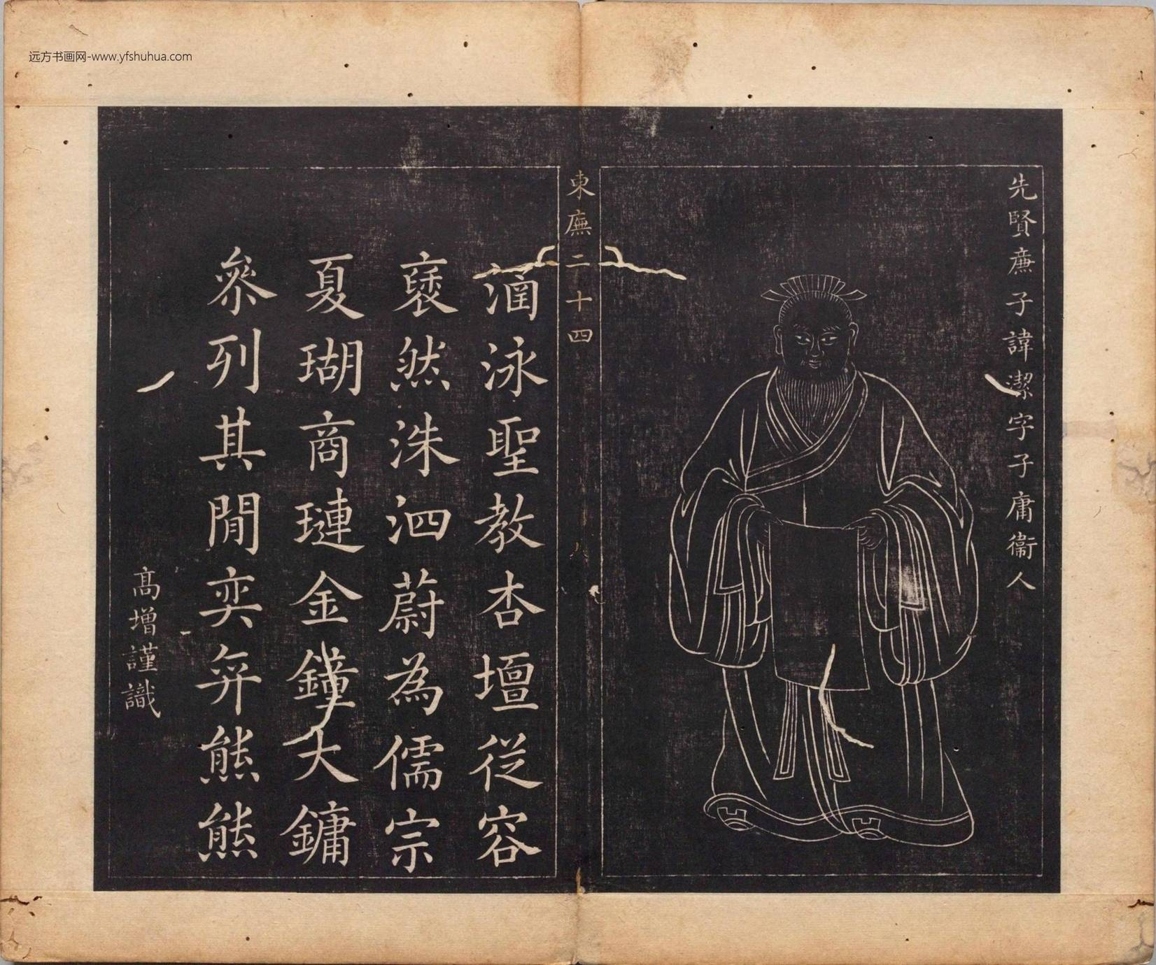 远方书画网-www.yfshuhua.com
先賢㢘子諱潔字子庸衞人
東廡二十四
涵泳聖教杏壇從容
褎然洙泗蔚為儒宗
夏瑚商璉金鐘大鏞
叅列其閒奕奕熊熊
高增謹識